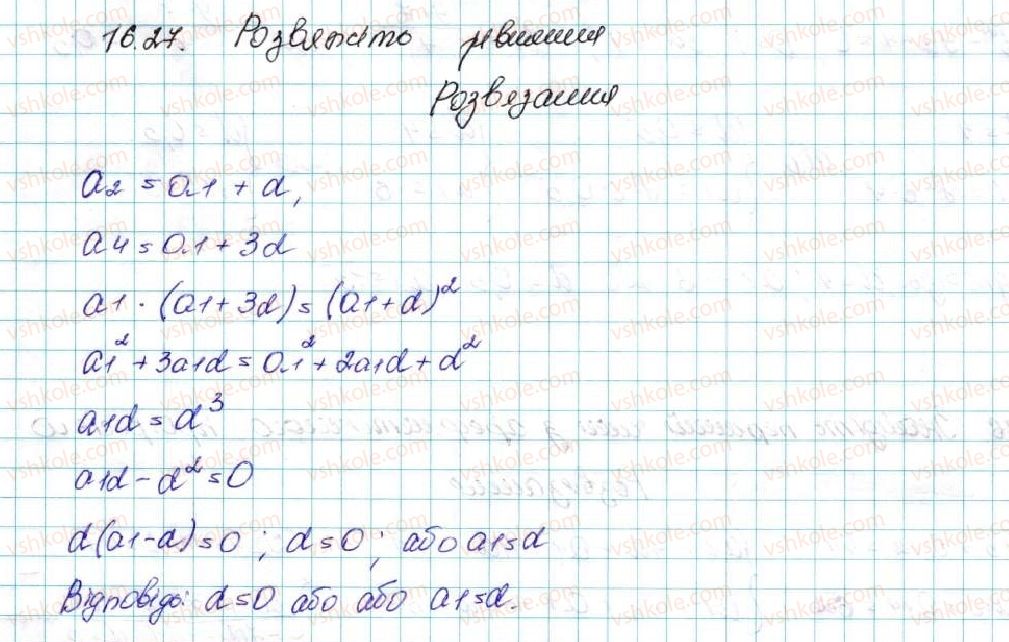 16.27. Розвяжіть рівняння
Розвязання
a2 = a1 + d,
a4 = a1 + 3d
a1 · (a1 + 3d) = (a1 + d)²
a1² + 3a1d = a1² + 2a1d + d²
a1d = d³
a1d - d² = 0
d(a1-d) = 0 ; d = 0 ; або a1 = d
Відповідь: d = 0 або або a1 = d.